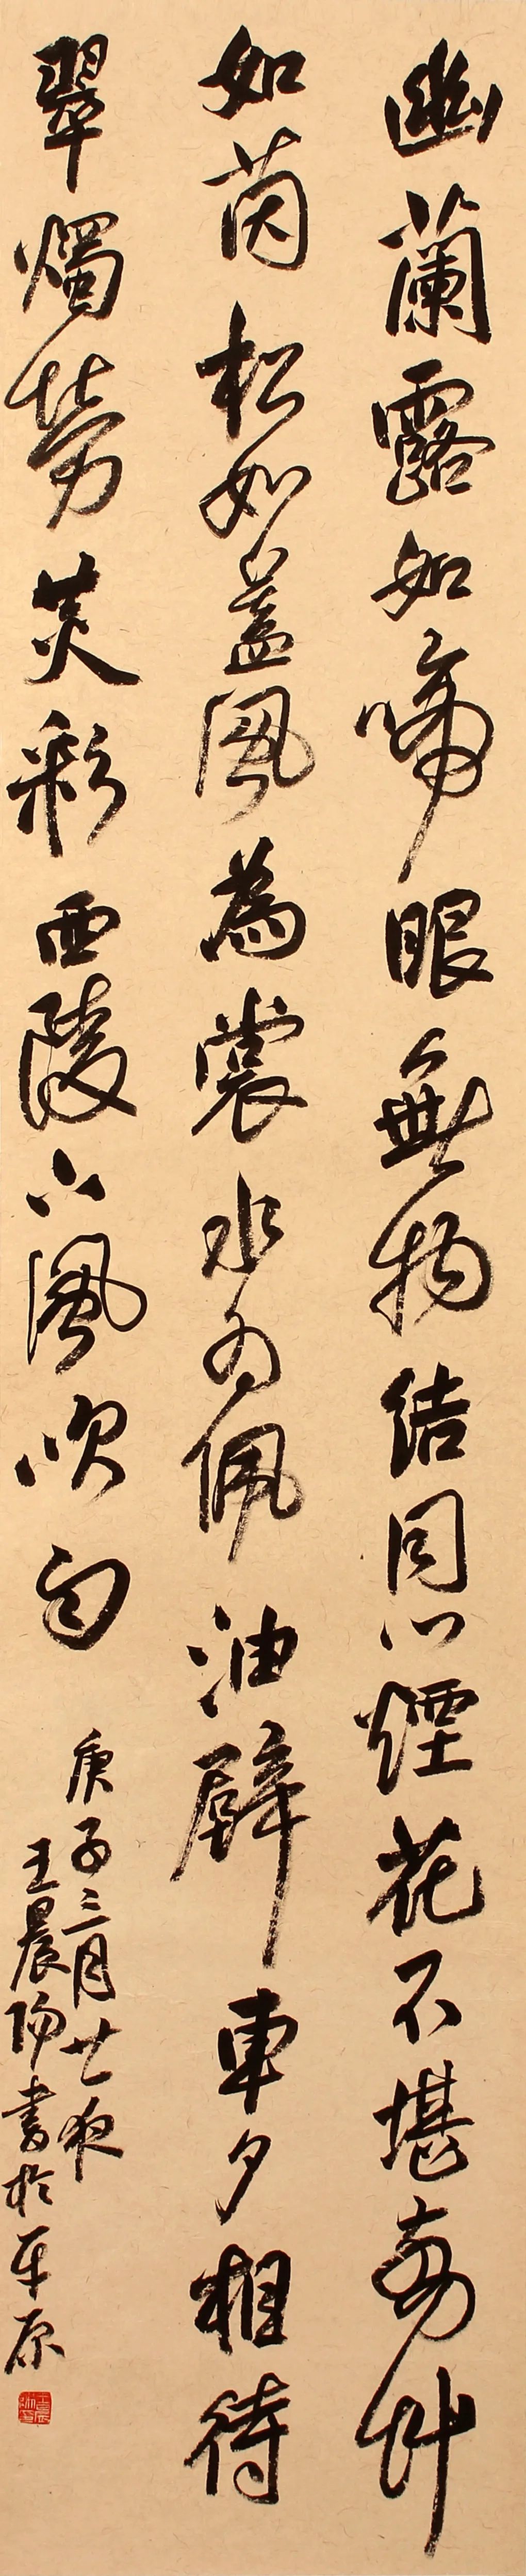 幽蘭露如啼眼無物結同心煙花不堪剪艸
如茵松如蓋風為裳水為佩油辟車夕相待
翠燭勞炗彩西陵下風吹雨
庚子三月廿夜
王晨陽書於平原